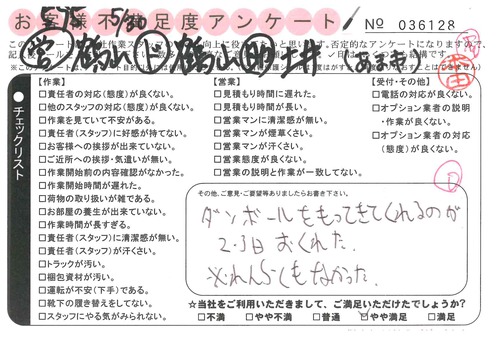 575 5/30
お客様不満足度アンケート
No 036128
営 鶴山 下 鶴山
チェックリスト
【作業】
□責任者の対応(態度)が良くない。
□他のスタッフの対応(態度)が良くない。
□作業を見ていて不安がある。
□責任者(スタッフ)に好感が持てない。
□お客様への挨拶が出来ていない。
□ご近所への挨拶・気遣いが無い。
□作業開始前の内容確認がなかった。
□作業開始時間が遅れた。
□荷物の取り扱いが雑である。
□お部屋の養生が出来ていない。
□作業時間が長すぎる。
□責任者(スタッフ)に清潔感が無い。
□責任者(スタッフ)が汗くさい。
□トラックが汚い。
□梱包資材が汚い。
□運転が不安(下手)である。
□靴下の履き替えをしてない。
□スタッフにやる気がみられない。
【営業】
□見積もり時間に遅れた。
□見積もり時間が長い。
□営業マンに清潔感が無い。
□営業マンが煙草くさい。
□営業マンが汗くさい。
□営業態度が良くない。
□営業の説明と作業が一致してない。
【受付・その他】
□電話の対応が良くない。
□オプション業者の説明
・作業が良くない。
□オプション業者の対応
(態度)が良くない。
その他、ご意見・ご要望等ありましたらお書き下さい。
ダンボールをもってきてくれるのが
2・3日おくれた。
※れんらくもなかった。
☆当社をご利用いただきまして、ご満足いただけたでしょうか?
□不満 □やや不満 □普通 □やや満足 □満足